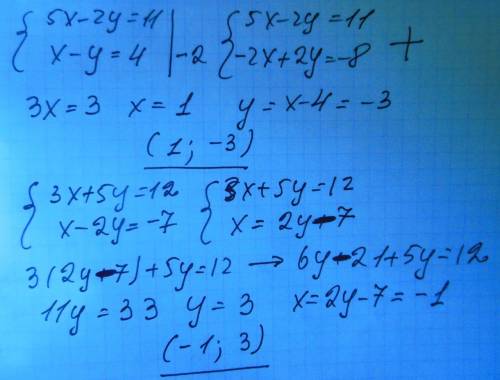 { 5x-2y=11 { 5x-2y=11
x-y=4 |-2 -2x+2y=-8 +
3x=3 x=1 y=x-4=-3
(1; -3)
{ 3x+5y=12 { 3x+5y=12
x-2y=-7 x=2y-7
3(2y-7)+5y=12 → 6y-21+5y=12
11y=33 y=3 x=2y-7=-1
(-1; 3)